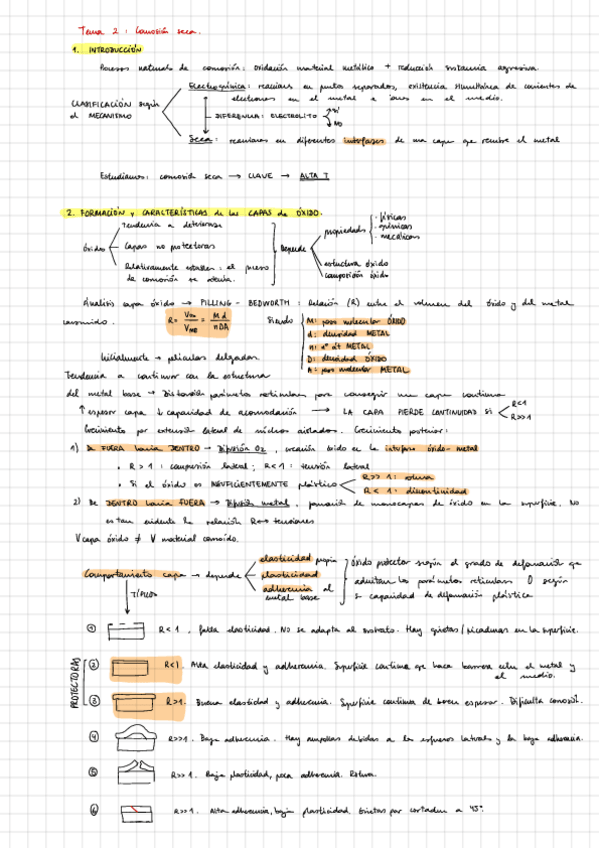 Tema 2: Corrosión seca.
1. INTRODUCCIÓN
Procesos naturales de corrosión: oxidación material metálico + reducción sustancia agresiva.
Electroquímica: reacciones en puntos separados, existencia simultánea de corrientes de
electrones en el metal e iones en el medio.
CLASIFICACIÓN según
el MECANISMO
DIFERENCIA: ELECTROLITO
SÍ
NO
Seca: reacciones en diferentes interfases de una capa que recubre el metal
Estudiamos: corrosión seca → CLAVE → ALTA T
2. FORMACIÓN y CARACTERÍSTICAS de las CAPAS de ÓXIDO.
Óxido
Tendencia a deteriorarse
Capas no protectoras
Relativamente estables: el proceso
de corrosión se atenúa.
Depende
propiedades
físicas
químicas
mecánicas
estructura óxido
composición óxido
Análisis capa óxido → PILLING - BEDWORTH: Relación (R) entre el volumen del óxido y del metal
consumido.
R = Vox / VME = Md / nDA
Siendo
M: peso molecular ÓXIDO
d: densidad METAL
n: nº át METAL
D: densidad ÓXIDO
A: peso molecular METAL
Inicialmente → películas delgadas.
Tendencia a continuar con la estructura
del metal base → Distorsión parámetros reticulares para conseguir una capa continua
↑ espesor capa ↓ capacidad de acomodación → LA CAPA PIERDE CONTINUIDAD si
R<1
R>>1
Crecimiento por extensión lateral de núcleos aislados. Crecimiento posterior:
1) De FUERA hacia DENTRO → Difusión O2, creación óxido en la interfase óxido-metal
• R > 1: compresión lateral; R < 1: tensión lateral
• Si el óxido es INSUFICIENTEMENTE plástico
R >> 1: rotura
R < 1: discontinuidad
2) De DENTRO hacia FUERA → Difusión metal, formación de monocapas de óxido en la superficie. No
es tan evidente la relación R↔tensiones
V capa óxido ≠ V material corroído.
Comportamiento capa → depende
elasticidad propia
plasticidad
adherencia al
metal base
Óxido protector según el grado de deformación que
admitan los parámetros reticulares O según
capacidad de deformación plástica
TÍPICOS
1 R < 1, falta elasticidad. No se adapta al sustrato. Hay grietas/picaduras en la superficie.
PROTECTORAS
2 R<1 Alta elasticidad y adherencia. Superficie continua que hace barrera entre el metal y
el medio.
3 R>1. Buena elasticidad y adherencia. Superficie continua de buen espesor. Dificulta corrosión.
4 R>>1. Baja adherencia. Hay ampollas debidas a los esfuerzos laterales y la baja adherencia.
5 R>>1. Baja plasticidad, poca adherencia. Rotura.
6 R>>1. Alta adherencia, baja plasticidad. Grietas por cortadura a 45º.